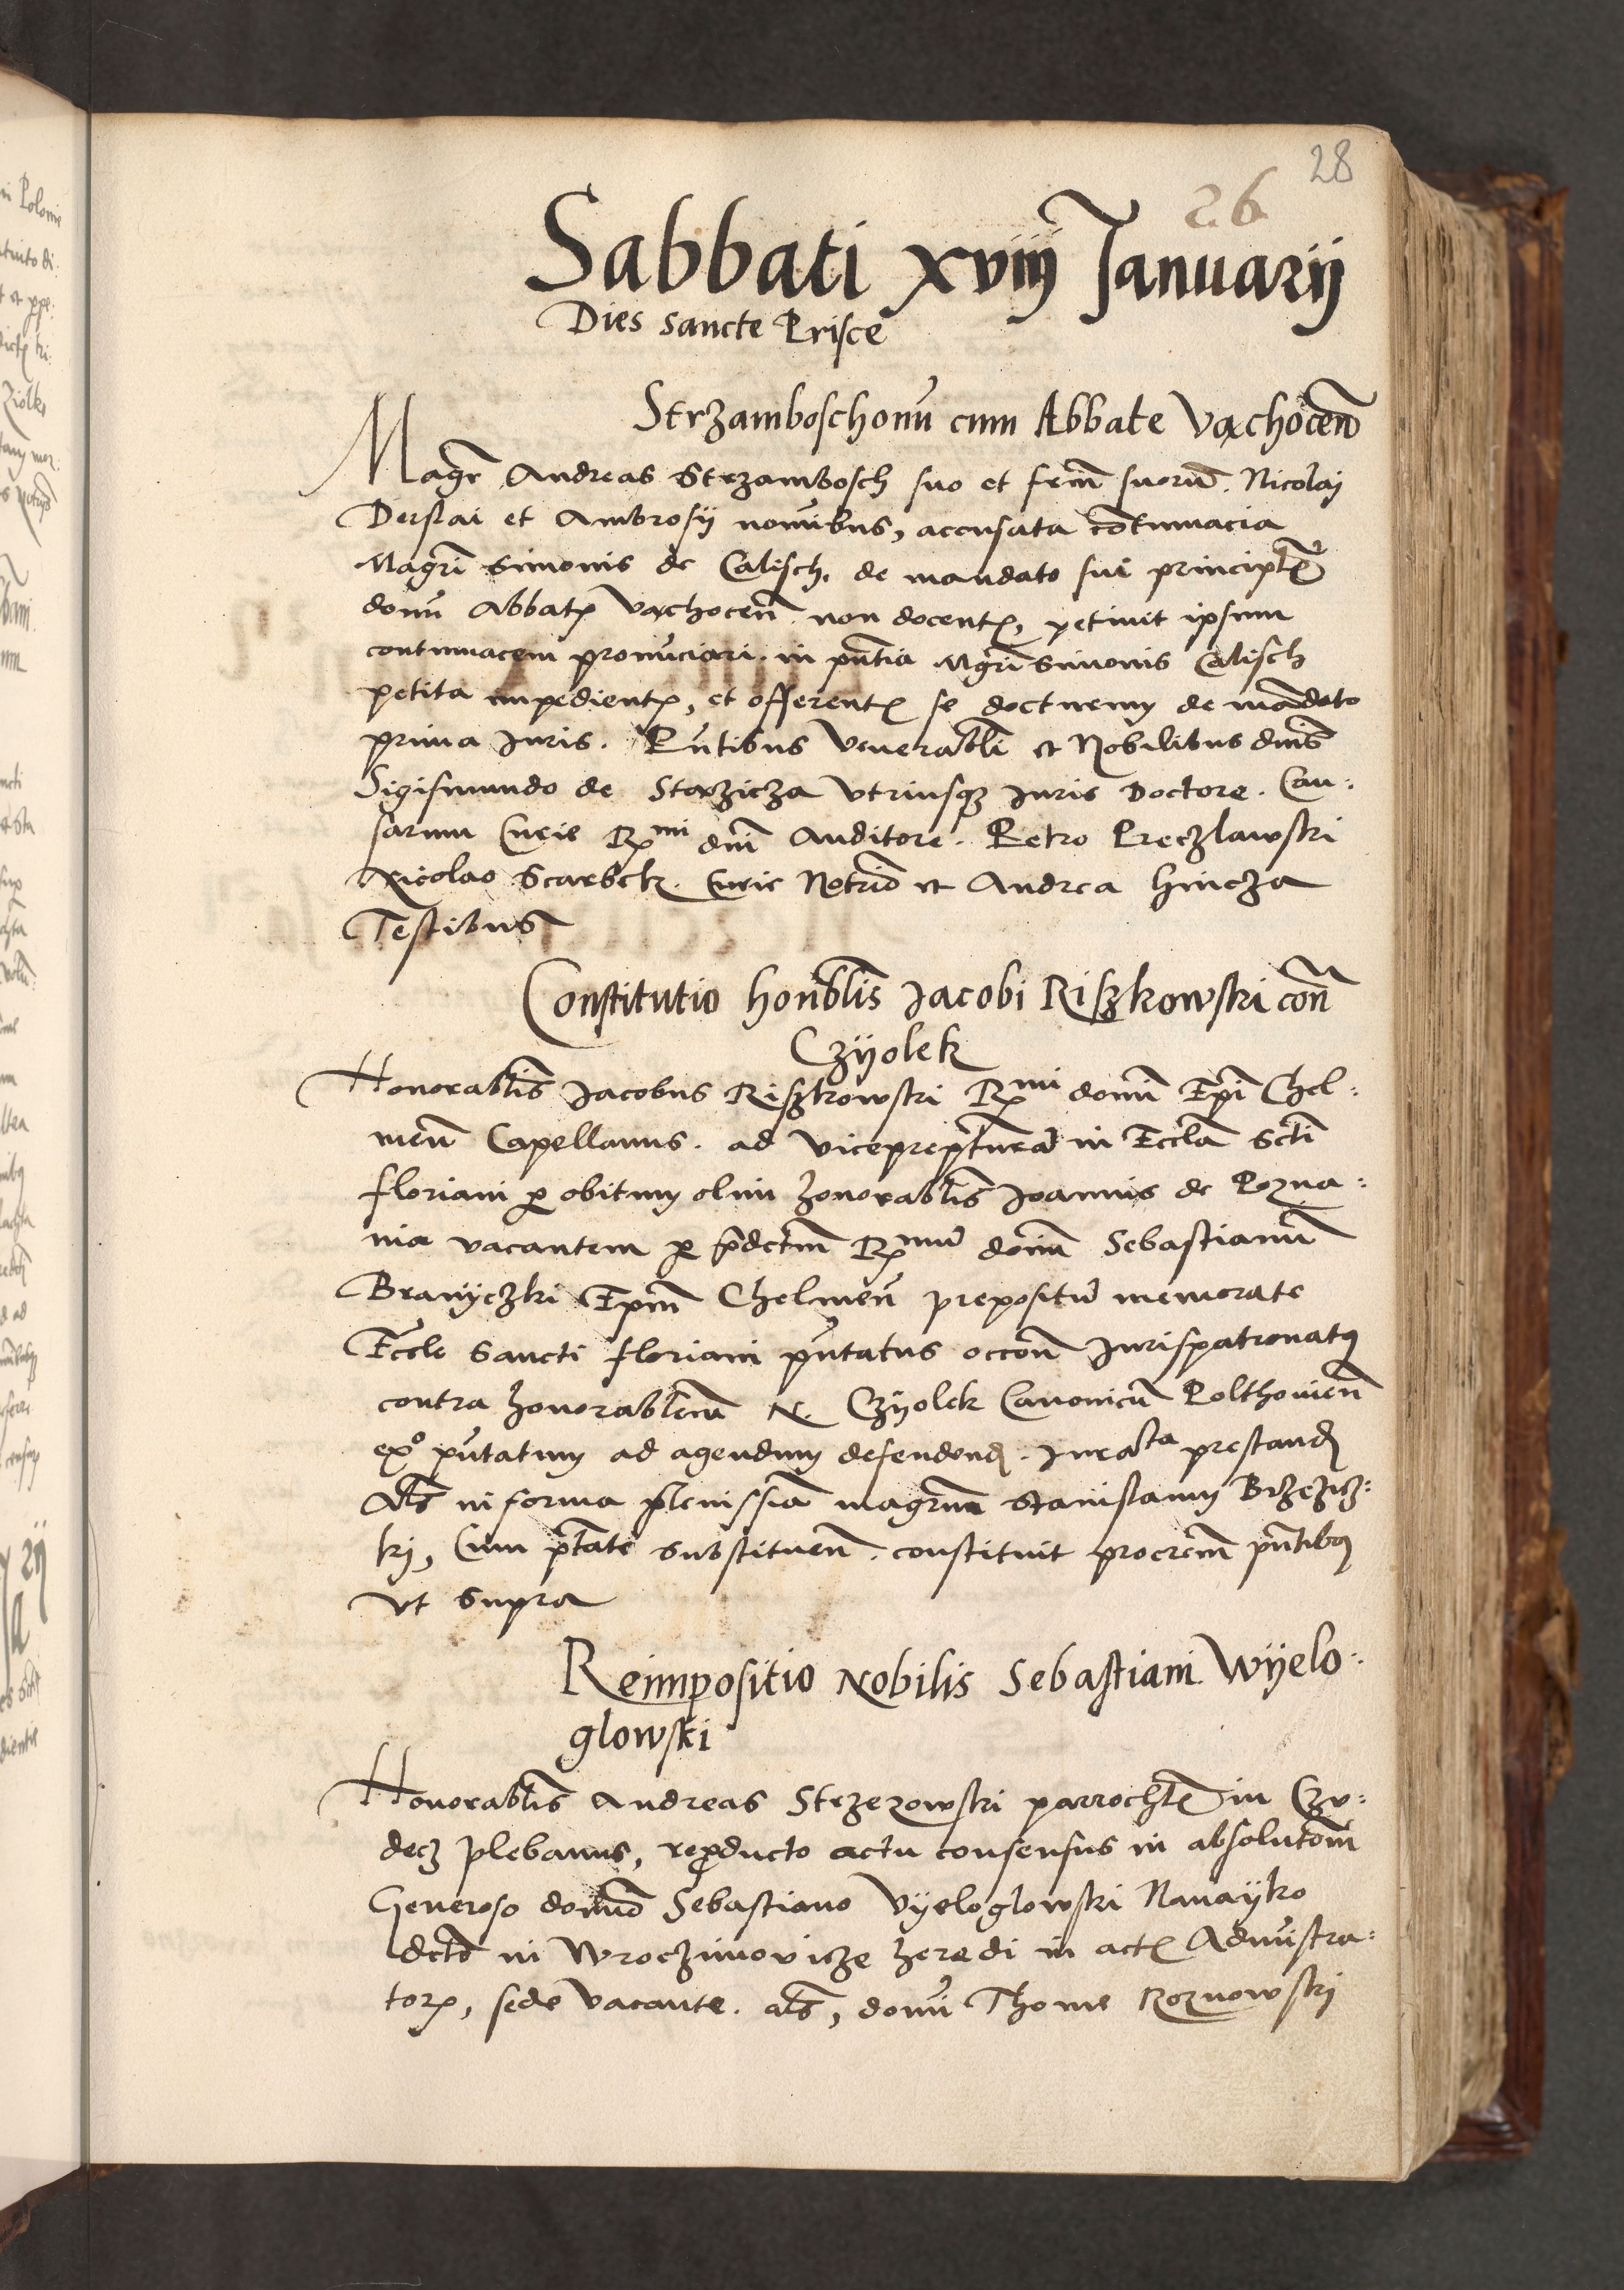 28
26
Sabbati xviij Januarij
Dies sancte Prisce
Strzamboschonũ cum Abbate Vąchoceñ
Magr̃ Andreas Strzambosch suo et fr̃m̃ suorũ. Nicolaj
Derslai et Ambrosij noĩbus, accusata cõtumacia
Magr̃i Simonis de Calisch. de mandato sui principl̃
doñi Abbatꝭ Vąchoceñ. non docentꝭ, petiuit ipsum
contumacem pronũciari. in pñtia Mgr̃i Simonis Calisch
petita impedientꝭ, et offerentꝭ se docturum de mãdato
prima Juris. Pñtibus Venerabli et Nobilibus dñis
Sigismundo de Starzicza Vtriusqȝ Juris Doctore. Cau:
sarum Curie Rmi dñi Auditore. Petro Preczlawski
Nicolao Scarbek. Curie Notrio et Andrea Hincza
Testibus
Constitutio honblis Jacobi Riszkowski coñ
Czÿolek
Honorablis Jacobus Riszkowski Rmi domĩ Epĩ Chel:
meñ Capellanus. ad viceprepturã in Eccłia Sctĩ
floriani ꝑ obitum olim honorablis Joannis de Pozna:
nia vacantem ꝑ p̃dctm̃ Rmũ domĩm Sebastianũ
Branÿczki Epm̃ Chelmeñ prepositũ memorate
Eccłe Sancti floriani pñtatus occoñe Jurispatronatꝰ
contra honorablem N. Czÿolek Canonicũ Polthouieñ
exo pñtatum ad agendum defendendꝭ. Jurata prestandꝭ
Als in forma plenissĩa magrum Stanislaum Brzezicz:
kj, Cum ptate substitueñ. constituit procrem̃ pñtibꝰ
vt supra
Reimpositio Nobilis Sebastiani Wÿelo:
glowski
Honorablis Andreas Strzezowski parrochl̃ in Czu:
decz plebanus, reproducto actu consensus in absolutom̃
Generoso domĩo Sebastiano Vÿeloglowski Nauaÿko
dcto in Wroczimovicze heredi in actꝭ Admĩstra:
torꝭ, sede vacante. als, doñi Thome Roznowskj